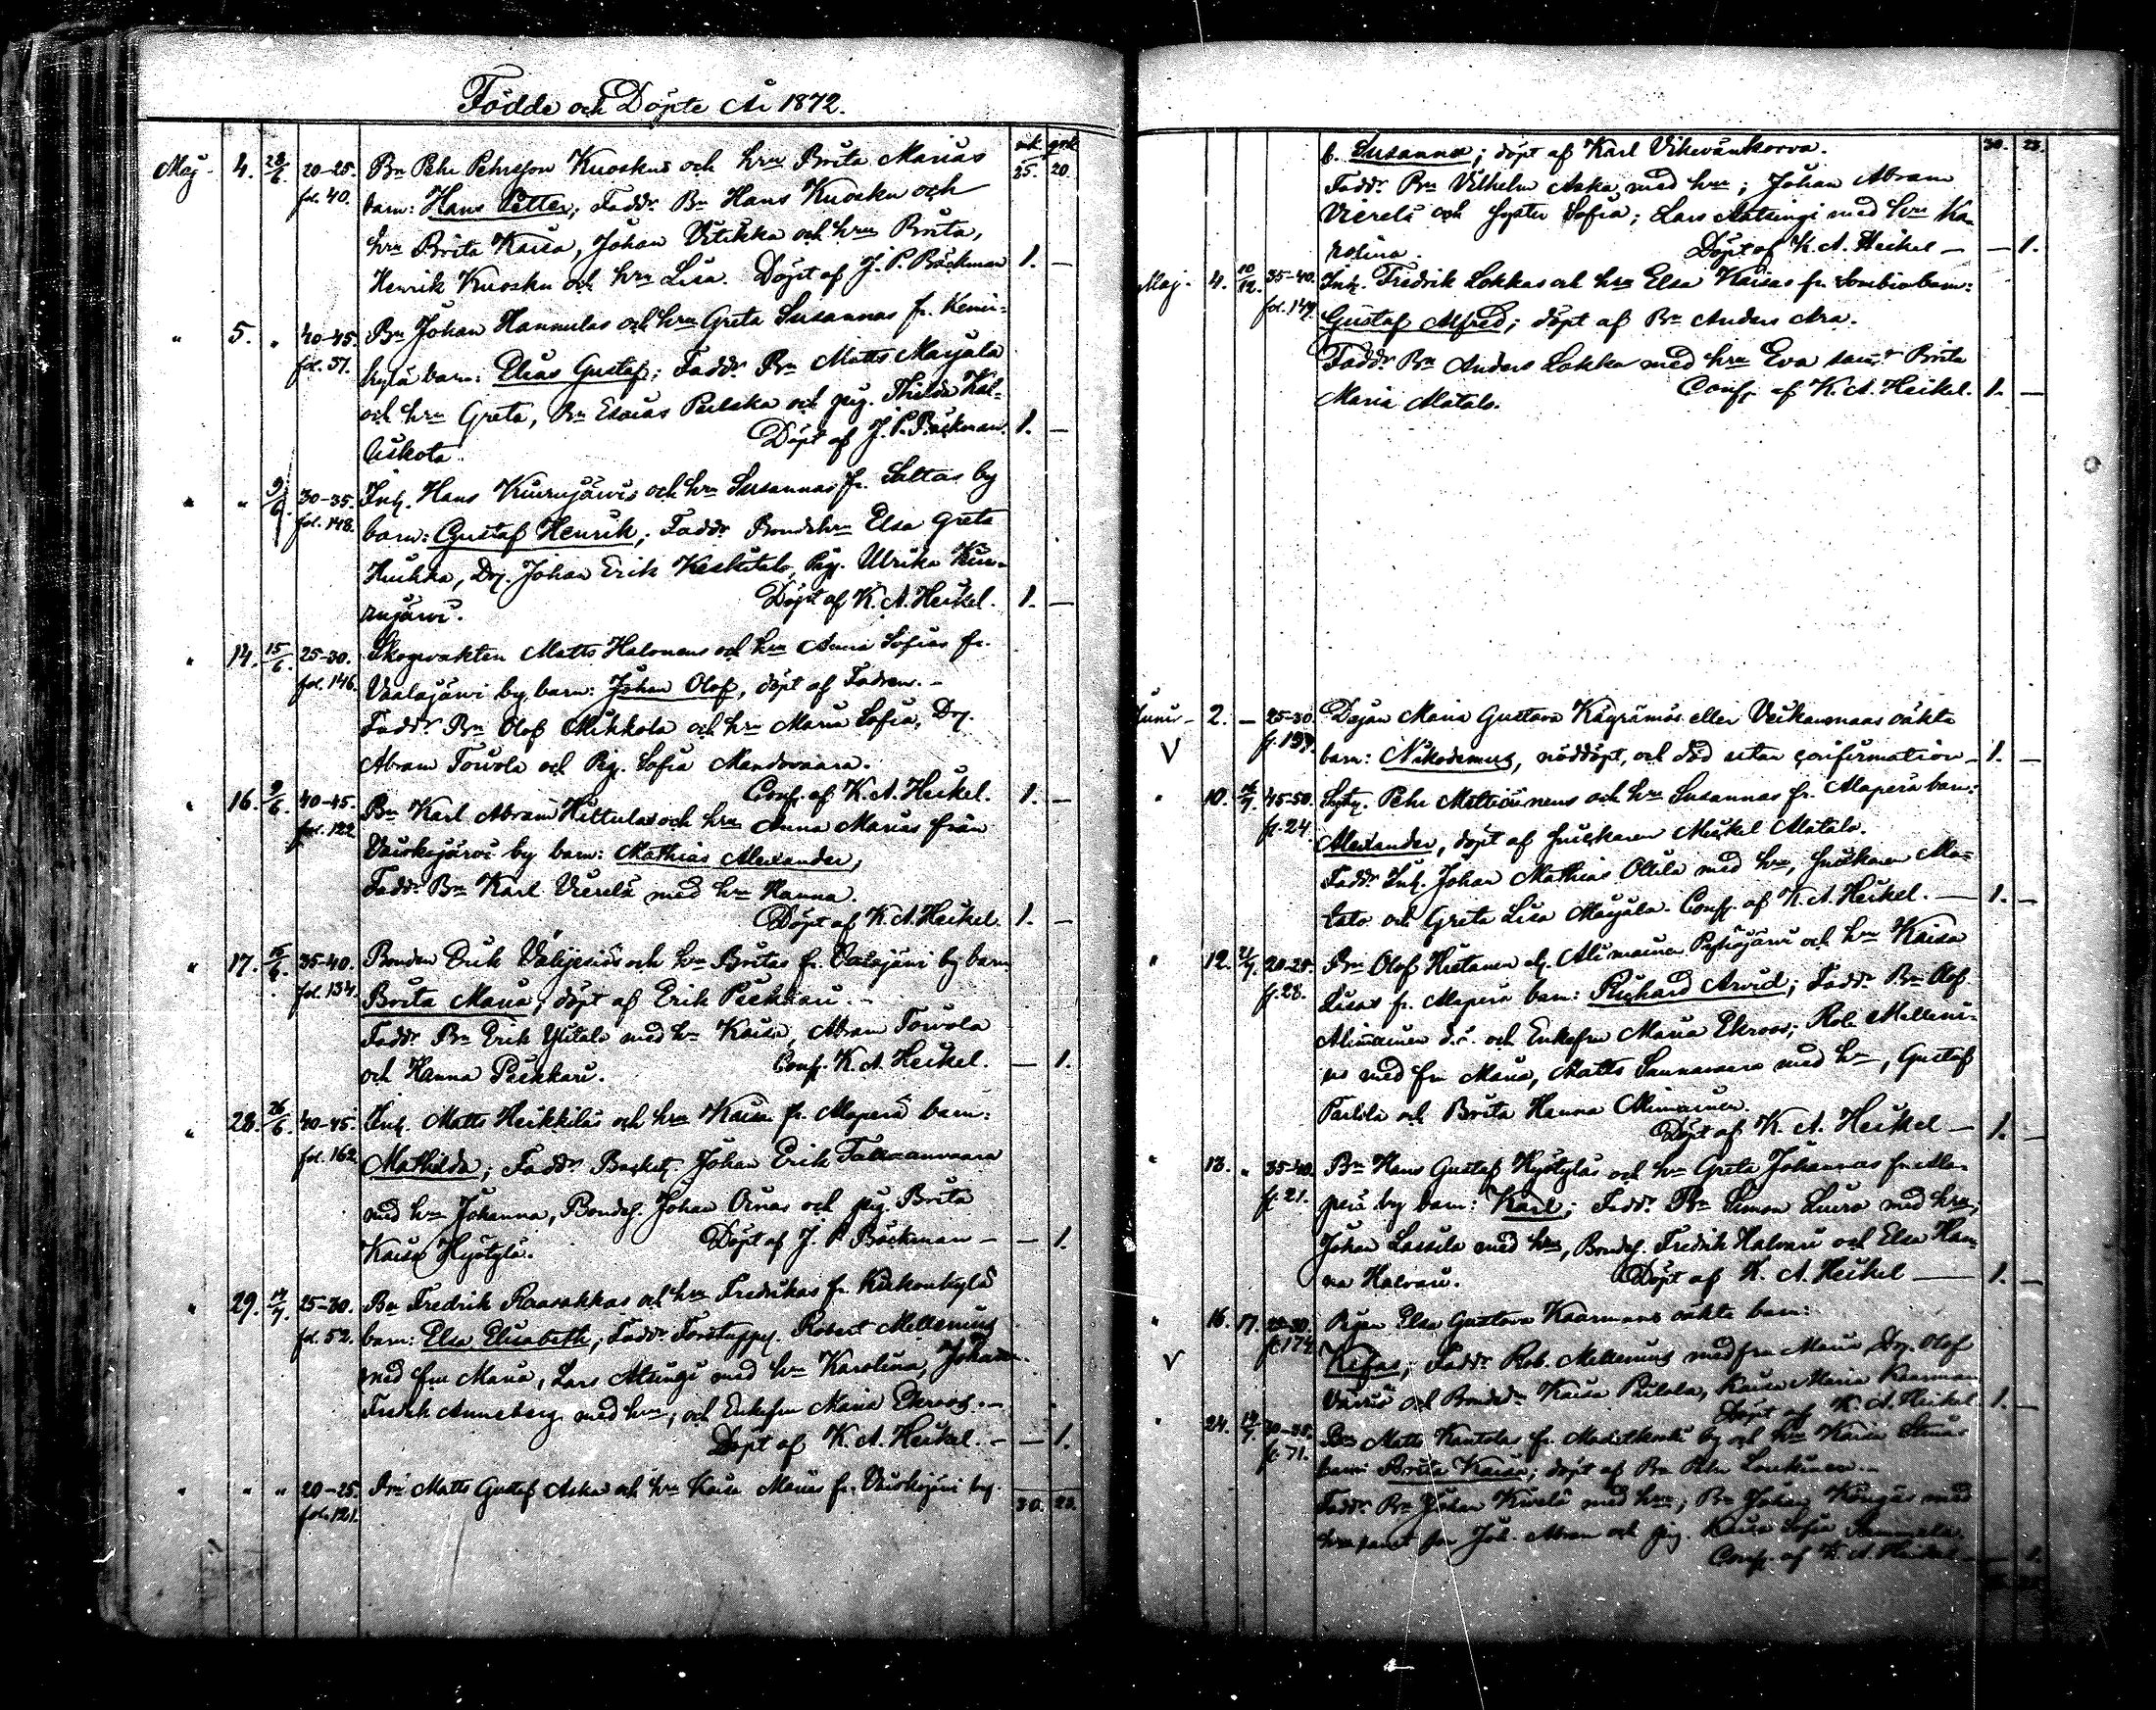 Födde och Döpte År 1872.
mk. qvk.
25. 20.
Maj 4. 28/6. 20-25. Bn Pehr Pehrsson Kuoskus och hru Brita Marias
fol. 40. barn: Hans Petter; Faddr Bn Hans Kuosku och
hru Brita Kaisa, Johan Vitikka och hru Brita,
Henrik Kuosku och hru Lisa. Döpt af J. P. Bäckman 1. —
" 5. " 40-45. Bn Johan Hannulas och hru Greta Susannas fr. Kemi-
fol. 57. kylä barn: Elias Gustaf; Faddr Bn Matts Marjala
och hru Greta, Bn Esaias Peilska och pig. Thilda Kal-
liskota. Döpt af J. P. Bäckman. 1. —
" " 9/6. 30-35. Inh. Hans Kiurujärvis och hru Susannas fr. Sattas by
fol. 148. barn: Gustaf Henrik; Faddr Bondehru Elsa Greta
Huhka, Drg. Johan Erik Keskitalo, Pig. Ulrika Kiu-
rujärvi. Döpt af K. A. Heikel. 1. —
" 14. 15/6. 25-30. Skogvakten Matts Halonens och hru Anna Sofias fr.
fol. 146. Vaalajärvi by barn: Johan Olof, döpt af Fadren. -
Faddr Bn Olof Mikkola och hru Maria Sofia, Drg.
Abram Torvola och Pig. Sofia Mandovaara.
Conf. af K. A. Heikel. 1. —
" 16. 9/6. 40-45. Bn Karl Abram Hiltulas och hru Anna Marias från
fol. 122. Vaiskojärvi by barn: Mathias Alexander,
Faddr Bn Karl Vierelä med hru Hanna.
Döpt af K. A. Heikel. 1. —
" 17. 35-40. Bonden Erik Välijesiös och hru Britas fr. Vaalajärvi by barn
fol. 134. Brita Maria; döpt af Erik Peikkari. -
Faddr Bn Erik Ylitalo med hru Kaisa, Abram Torvola
och Hanna Peikkari. Conf. K. A. Heikel. — 1.
" 28. 26/6. 40-45. Inh. Matts Heikkiläs och hru Kaisa fr. Alaperä barn:
fol. 162. Mathilda; Faddr Johan Erik
med hru Johanna, Bondes. Johan Ornas och pig. Brita
Kaisa Hyötylä. Döpt af J. P. Bäckman — — 1.
" 29. 14/7. 25-30. Bn Fredrik Raasakkas och hru Fredrikas fr. Kirkonkylä
fol. 52. barn: Elsa Elisabeth; Faddr Forstuppsy. Robert Mellenius
med fru Maria, Lars Alsingi med hru Karolina, Johan
Fredrik Anneberg med hru; och Enkefru Maria Ekroos. -
Döpt af K. A. Heikel. - — 1.
" " " 20-25. Bn Matts Gustaf Askas och hru Kaisa Marias fr. Vaiskojärvi by.
fol. 121. 30. 23.
30. 23.
b. Susanna; döpt af Karl Vihevänkorva.
Faddr Bn Vilhelm Aska med hru; Johan Abram
Vierelä och syster Sofia; Lars Alatsingi med hru Ka-
rolina. Döpt af K. A. Heikel — — 1.
Maj. 4. 10/12. 35-40. Inh. Fredrik Lokkas och hru Elsa Kaisas fr. Sombio barn:
fol. 149. Gustaf Alfred; döpt af Bn Anders Ara.
Faddr Bn Anders Lokka med hru Eva samt Brita
Maria Matalo. Conf. af K. A. Heikel. 1. —
Juni - 2. — 25-30. Maria Gustava Käyrämös eller Veikanmaas oäkta
V barn: Nikodemus, nöddöpt, och död utan confirmation — 1. —
" 10. 45-50. Pehr Mattinens och hru Susannas fr. Alaperä barn:
f. 24. Alexander, döpt af Mickel Matalo.
Faddr Inh. Johan Mathias Ollila med hru, Ma-
talo och Greta Lisa Marjala. Conf. af K. A. Heikel. — 1. —
" 12. 21/7. 20-25. Bn Olof Hietanen el. Alimainen Pyhäjärvi och hru Kaisa
f. 28. Lisas fr. Alaperä barn: Richard Arvid; Faddr Bn Olof
Alimainen d.ä. och Enkefru Maria Ekroos; Rob. Melleni-
us med fru Maria, Matts Sannavaara med hru, Gustaf
Parlola och Brita Hanna Alimainen.
Döpt af K. A. Heikel — 1. —
" 13. " 35-40. Bn Hans Gustaf Hyötyläs och hru Greta Johannas från Ala-
f. 21. perä by barn: Karl; Faddr Bn Simon Luiro med hru;
Johan Lassila med hru, Bondes. Fredrik Halvari och Elsa Han-
na Halvari. Döpt af K. A. Heikel — 1. —
" 16. 17. 25-30. Pigan Elsa Gustava Kaarmans oäkta barn:
V f. 174. Kefas; Faddr Rob. Mellenius med fru Maria Drg. Olof
och Bondehru Kaisa Peilola, Kaisa Maria Kaarman
Döpt af K. A. Heikel 1. —
" 24. 14/7. Bn Matts Kantolas fr. Madetkoski by och hru Kaisa Stinas
f. 71. barn: Brita Kaisa; döpt af Bn Pehr Loukinen. -
Faddr Bn Johan Kivelä med hru; Bn Johan Köngäs med
hru samt Joh. Abram och pig. Kaisa Sofia
Conf. af K. A. Heikel — — 1.